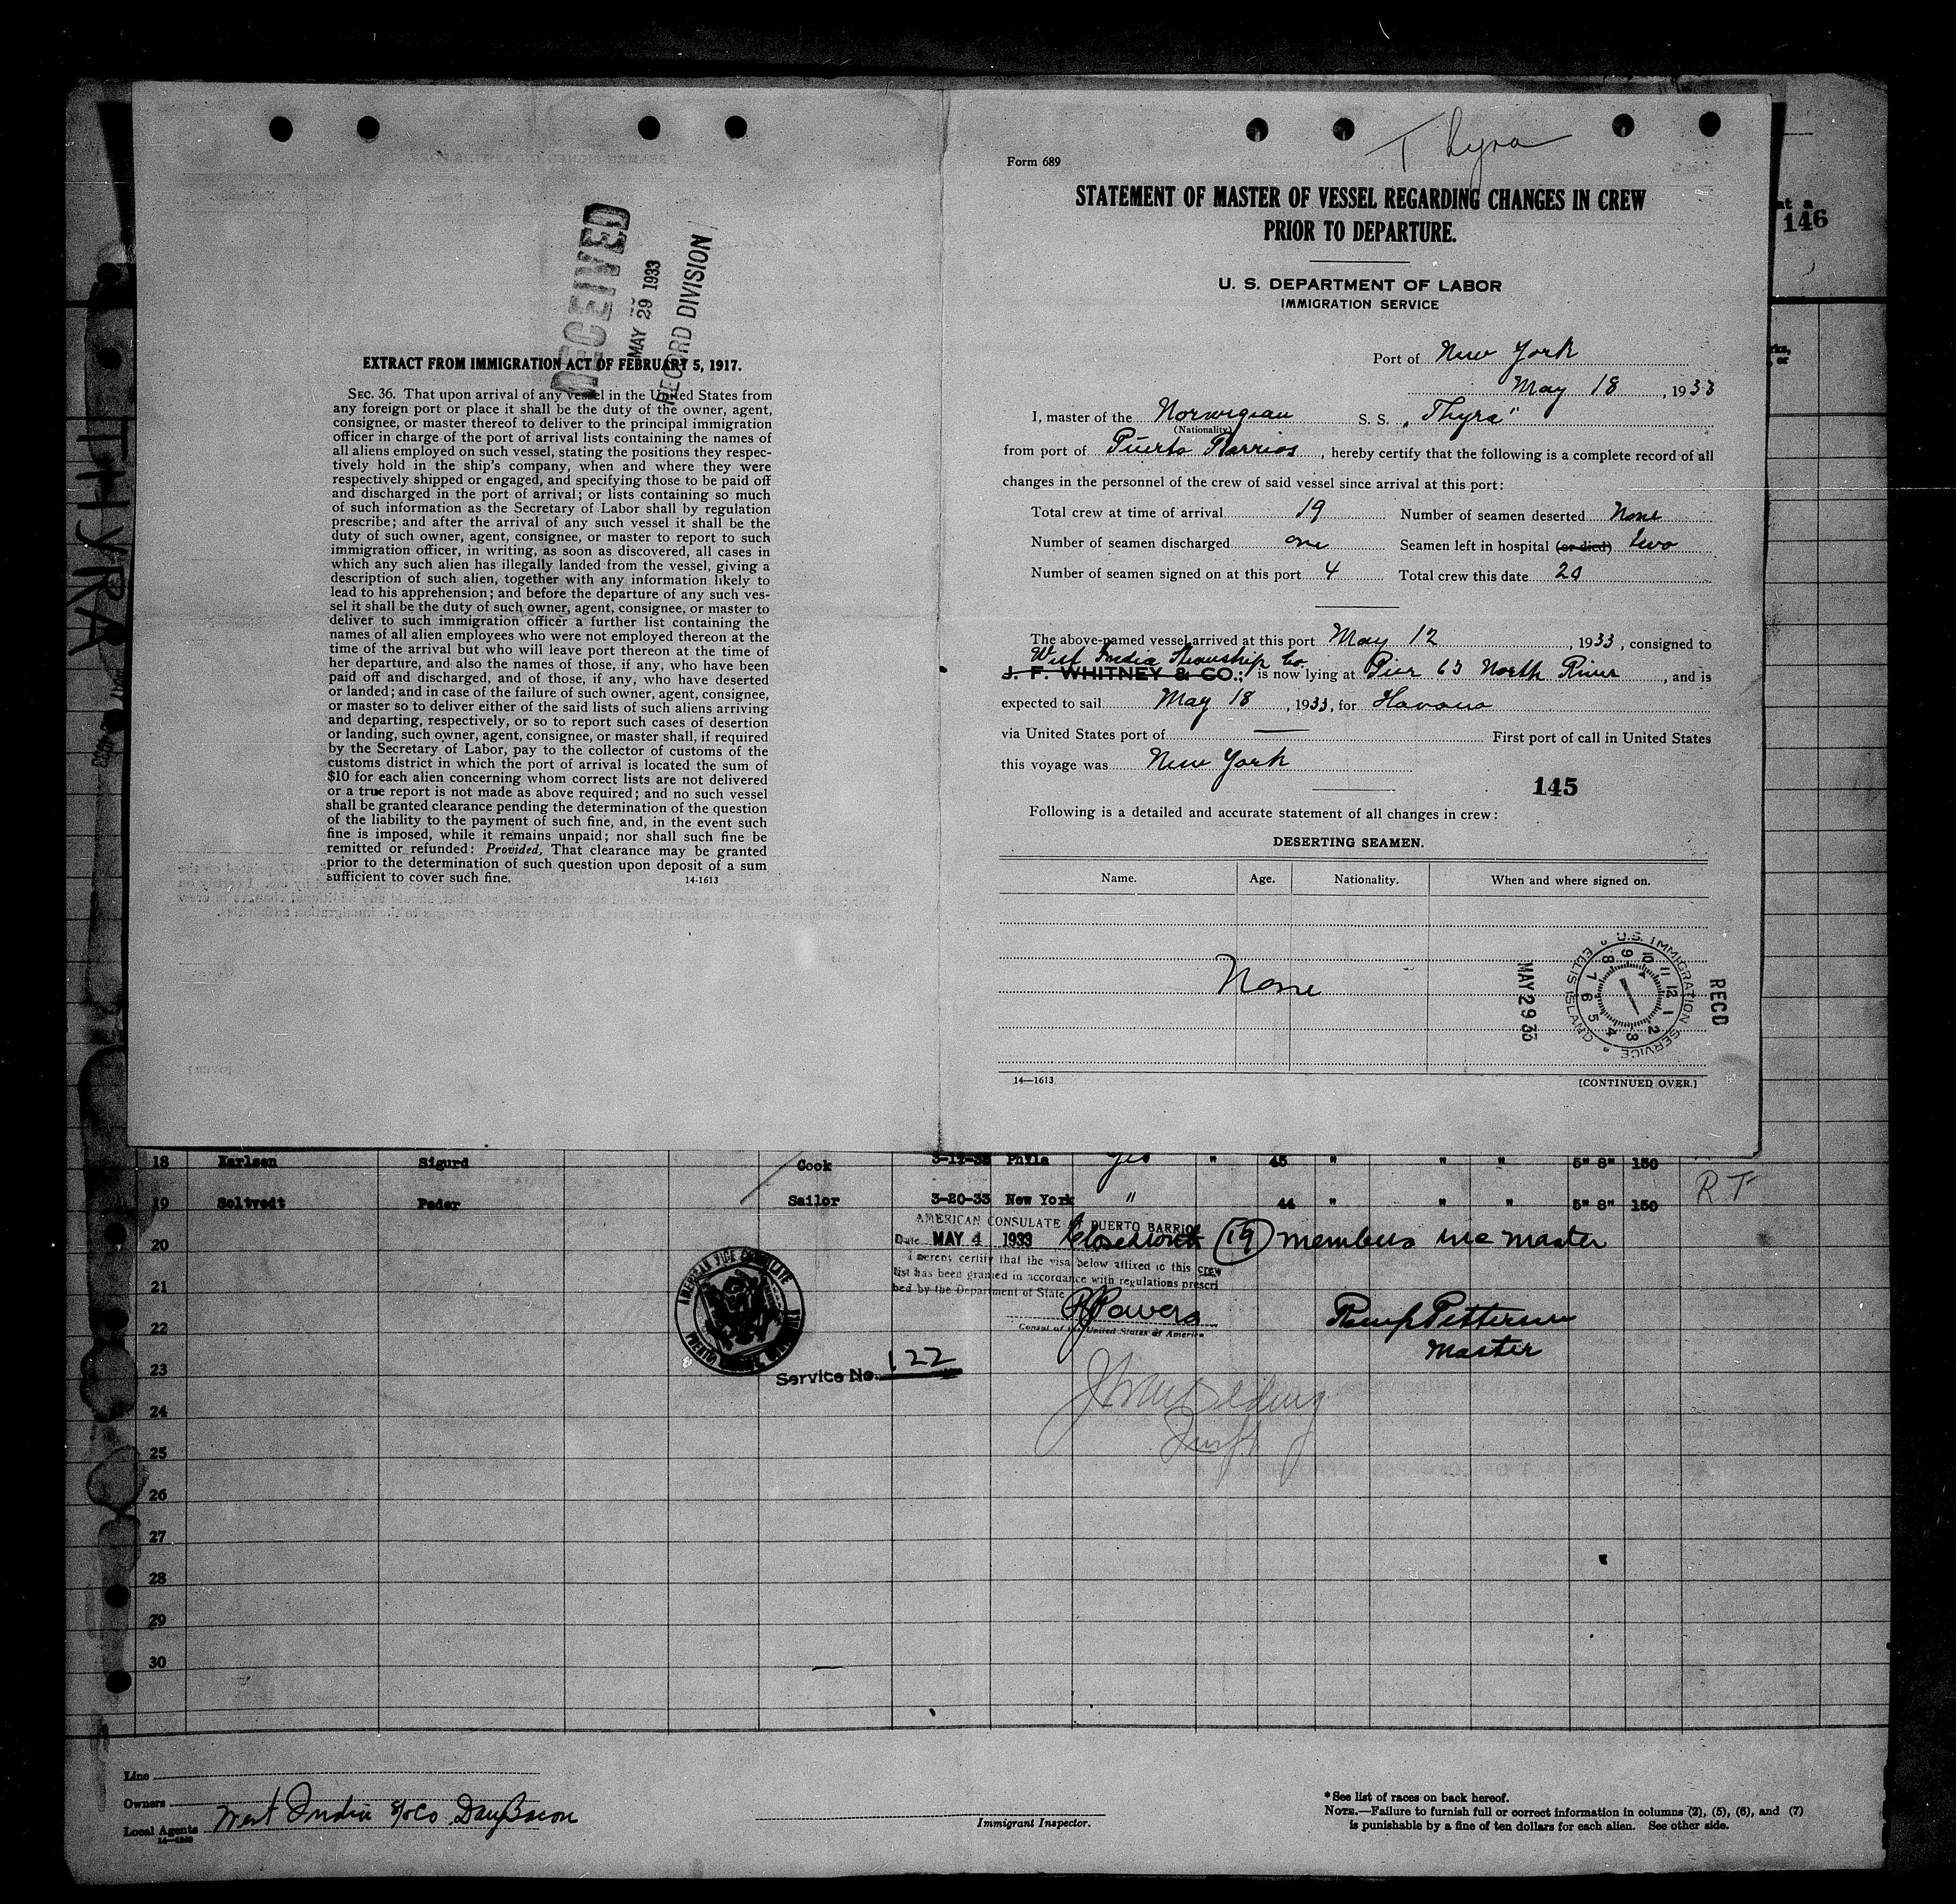 RECEIVED
MAY 29 1933
RECORD DIVISION
EXTRACT FROM IMMIGRATION ACT OF FEBRUARY 5, 1917.
SEC. 36. That upon arrival of any vessel in the United States from
any foreign port or place it shall be the duty of the owner, agent,
consignee, or master thereof to deliver to the principal immigration
officer in charge of the port of arrival lists containing the names of
all aliens employed on such vessel, stating the positions they respec-
tively hold in the ship's company, when and where they were
respectively shipped or engaged, and specifying those to be paid off
and discharged in the port of arrival; or lists containing so much
of such information as the Secretary of Labor shall by regulation
prescribe; and after the arrival of any such vessel it shall be the
duty of such owner, agent, consignee, or master to report to such
immigration officer, in writing, as soon as discovered, all cases in
which any such alien has illegally landed from the vessel, giving a
description of such alien, together with any information likely to
lead to his apprehension; and before the departure of any such ves-
sel it shall be the duty of such owner, agent, consignee, or master to
deliver to such immigration officer a further list containing the
names of all alien employees who were not employed thereon at the
time of the arrival but who will leave port thereon at the time of
her departure, and also the names of those, if any, who have been
paid off and discharged, and of those, if any, who have deserted
or landed; and in case of the failure of such owner, agent, consignee,
or master so to deliver either of the said lists of such aliens arriving
and departing, respectively, or so to report such cases of desertion
or landing, such owner, agent, consignee, or master shall, if required
by the Secretary of Labor, pay to the collector of customs of the
customs district in which the port of arrival is located the sum of
$10 for each alien concerning whom correct lists are not delivered
or a true report is not made as above required; and no such vessel
shall be granted clearance pending the determination of the question
of the liability to the payment of such fine, and, in the event such
fine is imposed, while it remains unpaid; nor shall such fine be
remitted or refunded: Provided, That clearance may be granted
prior to the determination of such question upon deposit of a sum
sufficient to cover such fine. 14-1613
THYRA
Thyra
Form 689
STATEMENT OF MASTER OF VESSEL REGARDING CHANGES IN CREW
PRIOR TO DEPARTURE.
U. S. DEPARTMENT OF LABOR
IMMIGRATION SERVICE
Port of New York
May 18, 1933
I, master of the Norwegian S. S. "Thyra"
(Nationality)
from port of Puerto Barrios, hereby certify that the following is a complete record of all
changes in the personnel of the crew of said vessel since arrival at this port:
Total crew at time of arrival 19 Number of seamen deserted None
Number of seamen discharged one Seamen left in hospital (or died) two
Number of seamen signed on at this port 4 Total crew this date 20
The above-named vessel arrived at this port May 12, 1933, consigned to
West India Steamship Co.
J. F. WHITNEY & CO.; is now lying at Pier 65 North River, and is
expected to sail May 18, 1933, for Havana
via United States port of — First port of call in United States
this voyage was New York
145
Following is a detailed and accurate statement of all changes in crew:
DESERTING SEAMEN.
Name. Age. Nationality. When and where signed on.
None
RECD
U.S. IMMIGRATION SERVICE ELLIS ISLAND
12 1 2 3 4 5 6 7 8 9 10 11
MAY 29 33
14—1613 [CONTINUED OVER.]
at a
146
18 Karlsen Sigurd Cook 3-12-33 Phila yes " 45 " " " 5" 8" 150
19 Soltvedt Peder Sailor 3-20-33 New York " 44 " " " 5" 8" 150 RT
20 AMERICAN CONSULATE At PUERTO BARRIOS
Date MAY 4 1933 Closed with (19) members inc master
I hereby certify that the visa below affixed to this crew
list has been granted in accordance with regulations prescri
bed by the Department of State
Powers
Consul of the United States of America
AMERICAN VICE CONSULATE
Service No. 122
Pettersen
Master
21
22
23
24
25
26
27
28
29
30
Line
Owners
Local Agents West India S/S Co Day Bacon
Immigrant Inspector.
*See list of races on back hereof.
NOTE.—Failure to furnish full or correct information in columns (2), (5), (6), and (7)
is punishable by a fine of ten dollars for each alien. See other side.